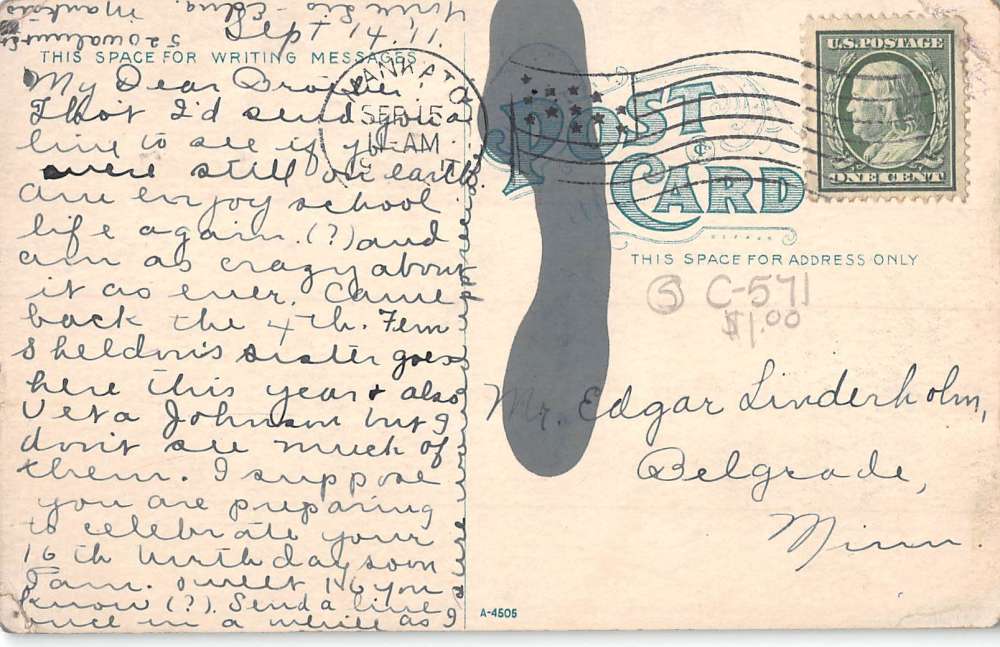 Sept 14, 11.
THIS SPACE FOR WRITING MESSAGES
My Dear Brother:
Thot I'd send you a
line to see if you
were still on earth.
am enjoy school
life again. (?) and
am as crazy about
it as ever. Came
back the 4th. Fern
Sheldon's sister goes
here this year + also
Veta Johnson but I
don't see much of
them. I suppose
you are preparing
to celebrate your
16 th birthday soon
I am. sweet 16 you
know (?). Send a line
once in a while as I
your Sis - Edna.
520 Walnut St
Mankato
MANKATO
SEP 15
11-AM
POST
CARD
U.S. POSTAGE
ONE CENT
THIS SPACE FOR ADDRESS ONLY
5 C-571
$1.00
Mr. Edgar Linderholm,
Belgrade,
Minn
A-4505